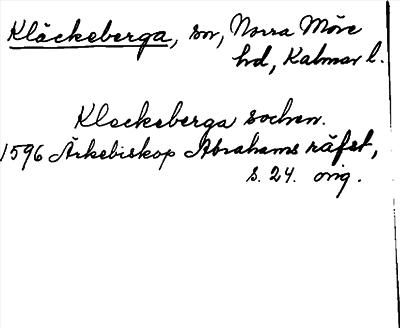 Kläckeberga, sn, Norra Möre
hd, Kalmar l.
Klockeberga sochen.
1596 Ärkebiskop Abrahams räfst,
s. 24. orig.